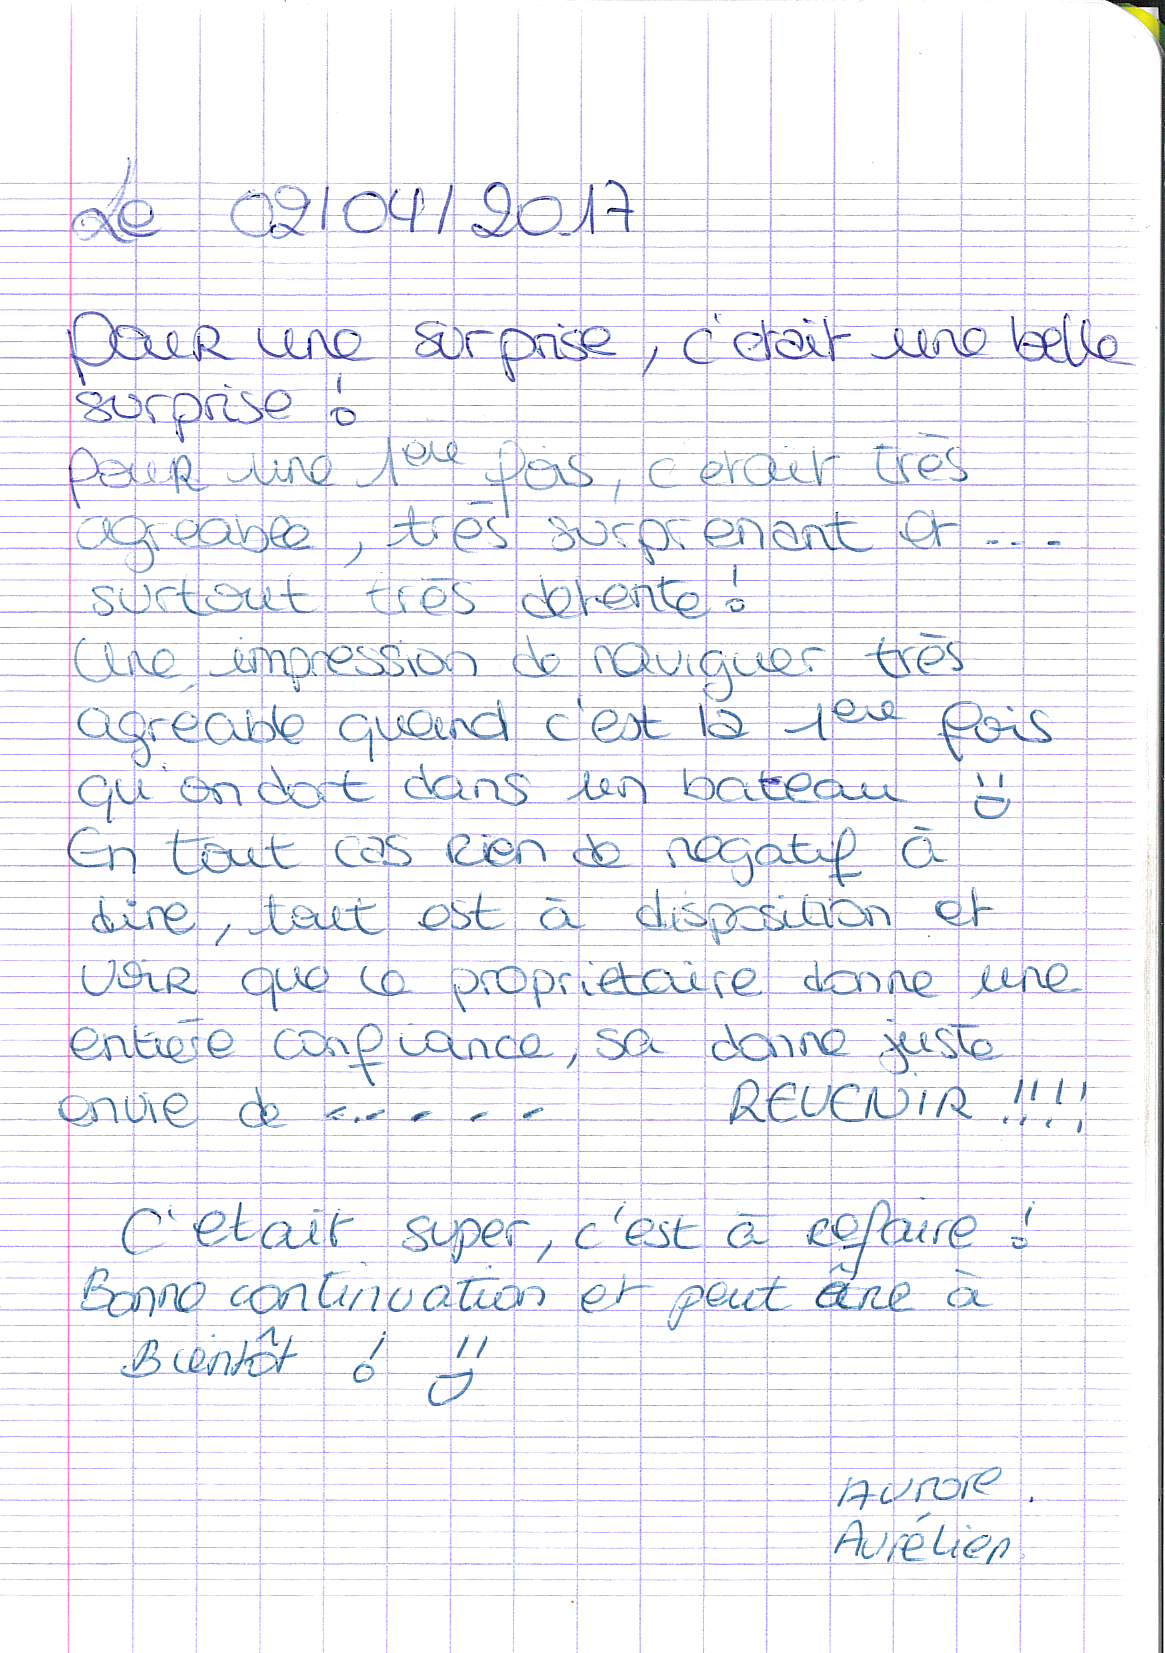 Le 02/04/2017
Pour une surprise, c'etait une belle
surprise !
Pour une 1ere fois, c'etait très
agreable, très surprenant et ...
surtout très detente !
Une impression de naviguer très
agréable quand c'est la 1ere fois
qu'on dort dans un bateau :)
En tout cas rien de negatif à
dire, tout est à disposition et
voir que le propriètaire donne une
entière confiance, sa donne juste
envie de ...... REVENIR !!!!
C'etait super, c'est à refaire !
Bonne continuation et peut être à
Bientôt ! :)
Aurore.
Aurélien